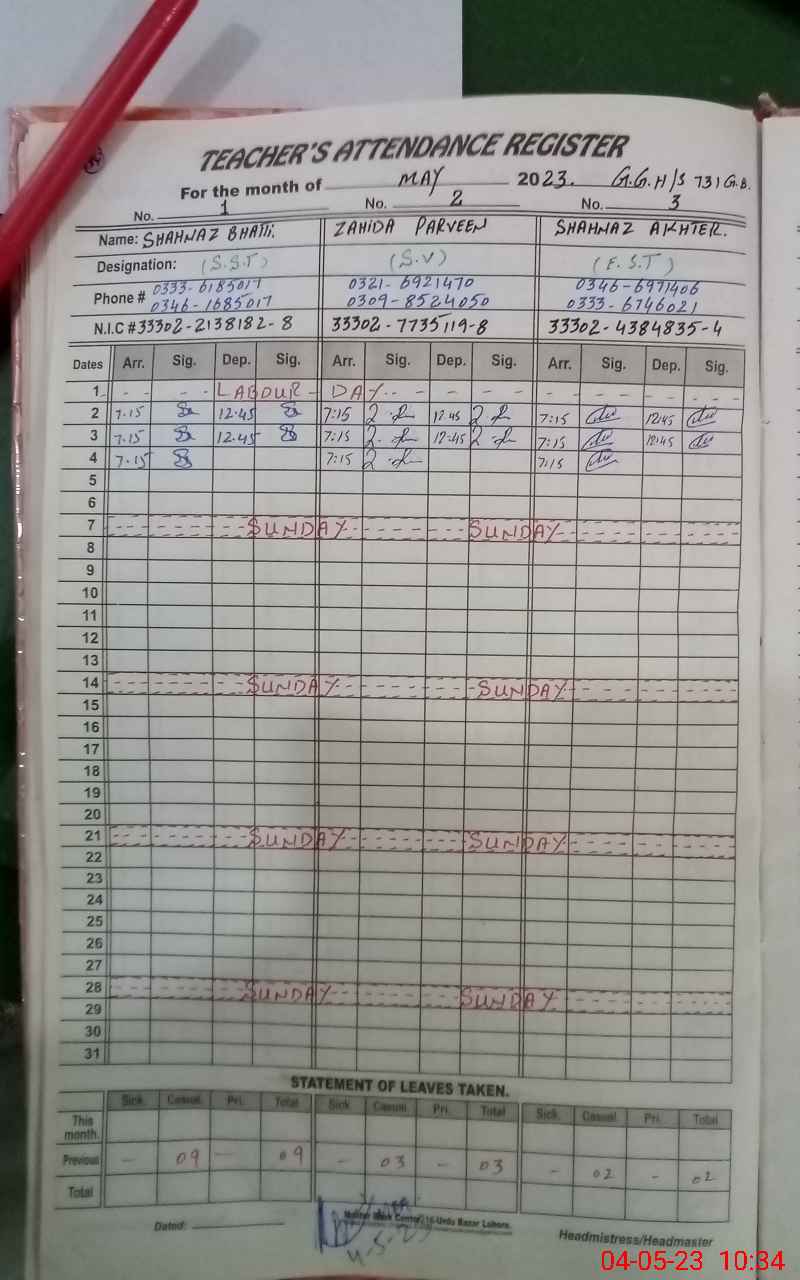 TEACHER'S ATTENDANCE REGISTER
For the month of MAY 2023. G.G.H/S 731 G.B.
No. 1 No. 2 No. 3
Name: SHAHNAZ BHATTI. ZAHIDA PARVEEN SHAHNAZ AKHTER.
Designation: (S.S.T) (S.V) (E.S.T)
Phone # 0333-6185017 0321-6921470 0346-6971406
0346-1685017 0309-8524050 0333-6746021
N.I.C # 33302-2138182-8 33302-7735119-8 33302-4384835-4
Dates Arr. Sig. Dep. Sig. Arr. Sig. Dep. Sig. Arr. Sig. Dep. Sig.
1 - - - - LABOUR - DAY - - - - - - - -
2 7.15 12.45 7:15 12.45 7:15 12:45
3 7.15 12.45 7:15 12.45 7:15 12:45
4 7.15 7:15 7:15
5
6
7 SUNDAY SUNDAY
8
9
10
11
12
13
14 SUNDAY SUNDAY
15
16
17
18
19
20
21 SUNDAY SUNDAY
22
23
24
25
26
27
28 SUNDAY SUNDAY
29
30
31
STATEMENT OF LEAVES TAKEN.
Sick. Casual. Pri. Total Sick Casual. Pri. Total Sick. Casual. Pri. Total
This month.
Previous - 09 - 09 - 03 - 03 - 02 - 02
Total
Dated: Book Center, 16-Urdu Bazar Lahore. Headmistress/Headmaster
4-5-23
04-05-23 10:34